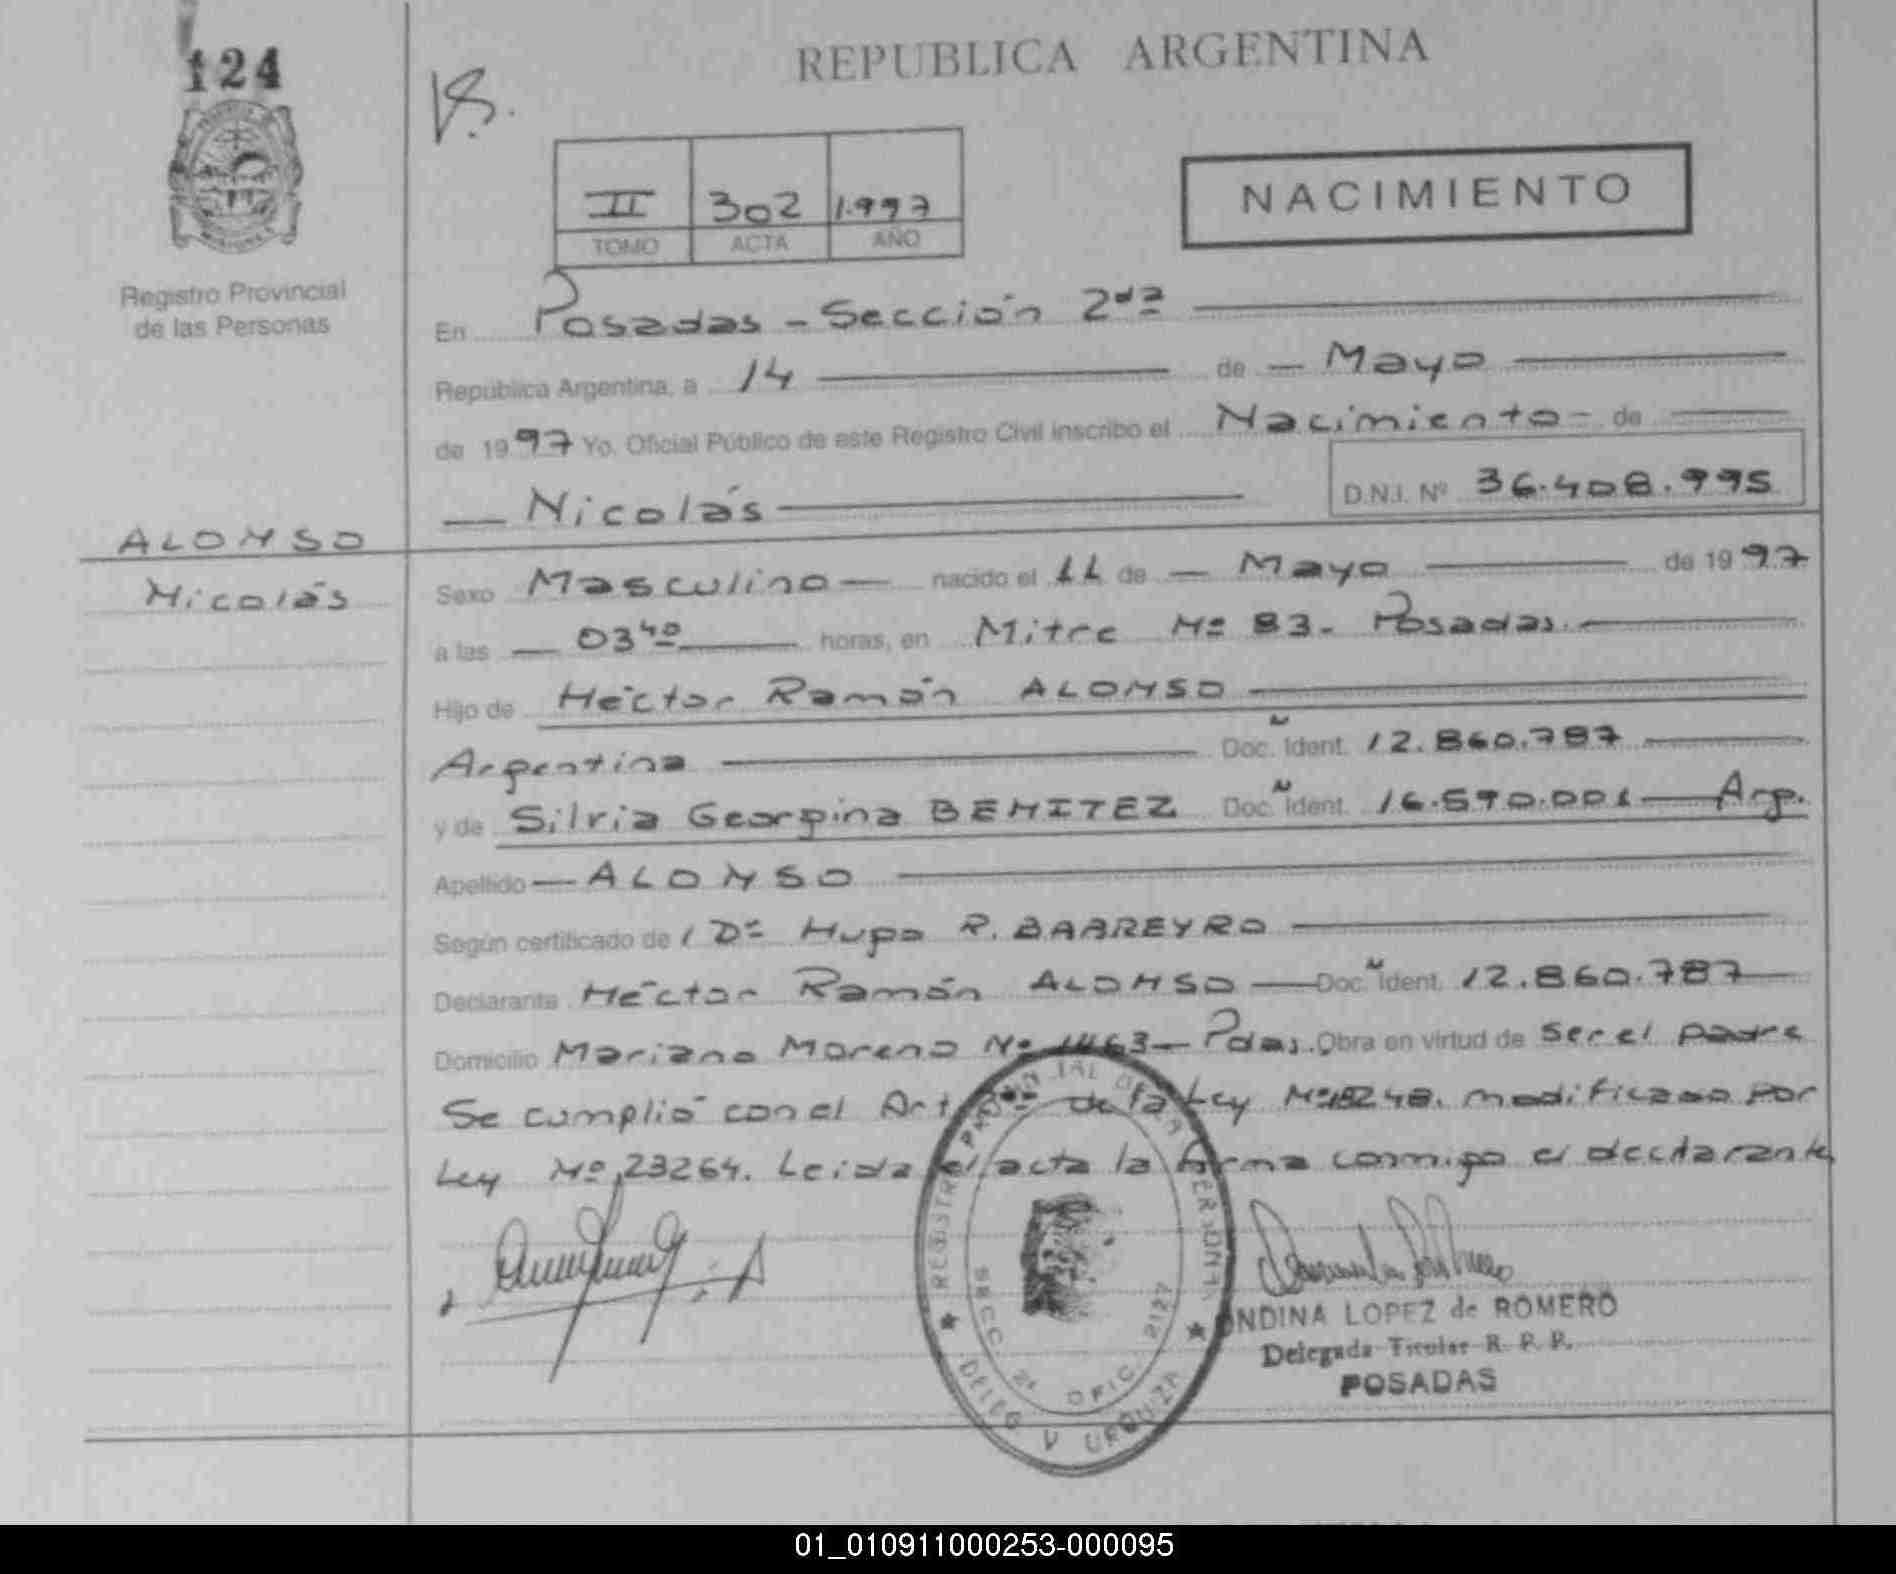 124
REPUBLICA ARGENTINA
II 302 1.997
TOMO ACTA AÑO
NACIMIENTO
Registro Provincial
de las Personas
En Posadas - Sección 2da
República Argentina, a 14 de - Mayo
de 1997 Yo, Oficial Público de este Registro Civil inscribo el Nacimiento - de
Nicolás D.N.I. Nº 36.408.995
ALONSO
Nicolás
Sexo Masculino nacido el 11 de - Mayo de 1997
a las 03 40 horas, en Mitre Nº 83. Posadas.
Hijo de Héctor Ramón ALONSO
Argentina Doc. Ident. 12.860.787
y de Silvia Georgina BENITEZ Doc. Ident. 16.590.001 Arg.
Apellido ALONSO
Según certificado de Dr Hugo R. BARREYRO
Declarante Héctor Ramón ALONSO Doc. Ident. 12.860.787
Domicilio Mariano Moreno Nº 1463 - Pdas. Obra en virtud de Ser el padre
Se cumplió con el Art de la Ley Nº 18248. modificado por
Ley Nº 23264. Leída el acta la firma conmigo el declarante
REGISTRO PROVINCIAL DE LAS PERSONAS
SECC. 2ª OFIC. 2127
DELEG V URQUIZA
ONDINA LOPEZ de ROMERO
Delegada Titular R. P. P.
POSADAS
01_010911000253-000095